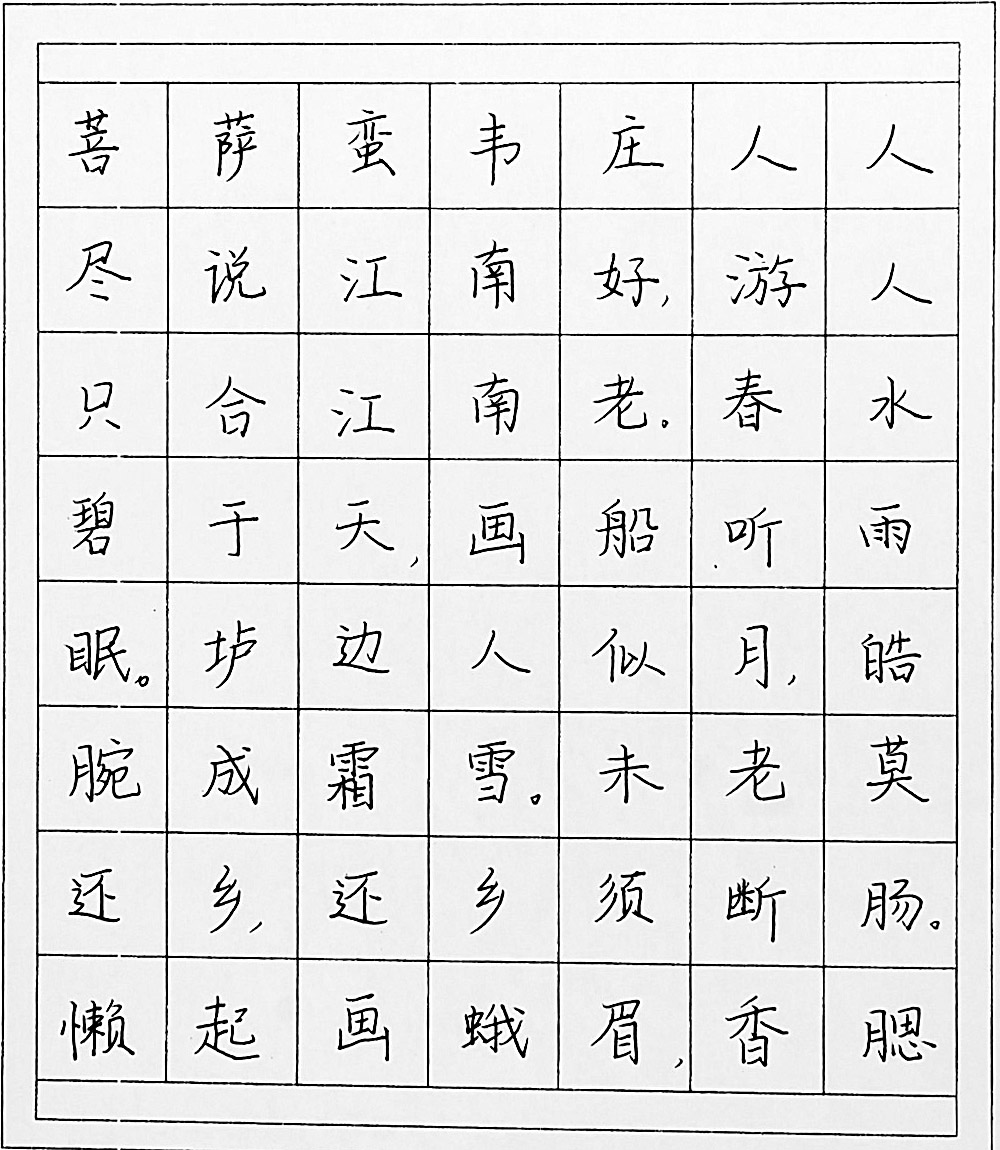 菩萨蛮韦庄人人
尽说江南好,游人
只合江南老。春水
碧于天,画船听雨
眠。垆边人似月,皓
腕成霜雪。未老莫
还乡,还乡须断肠。
懒起画蛾眉,香腮